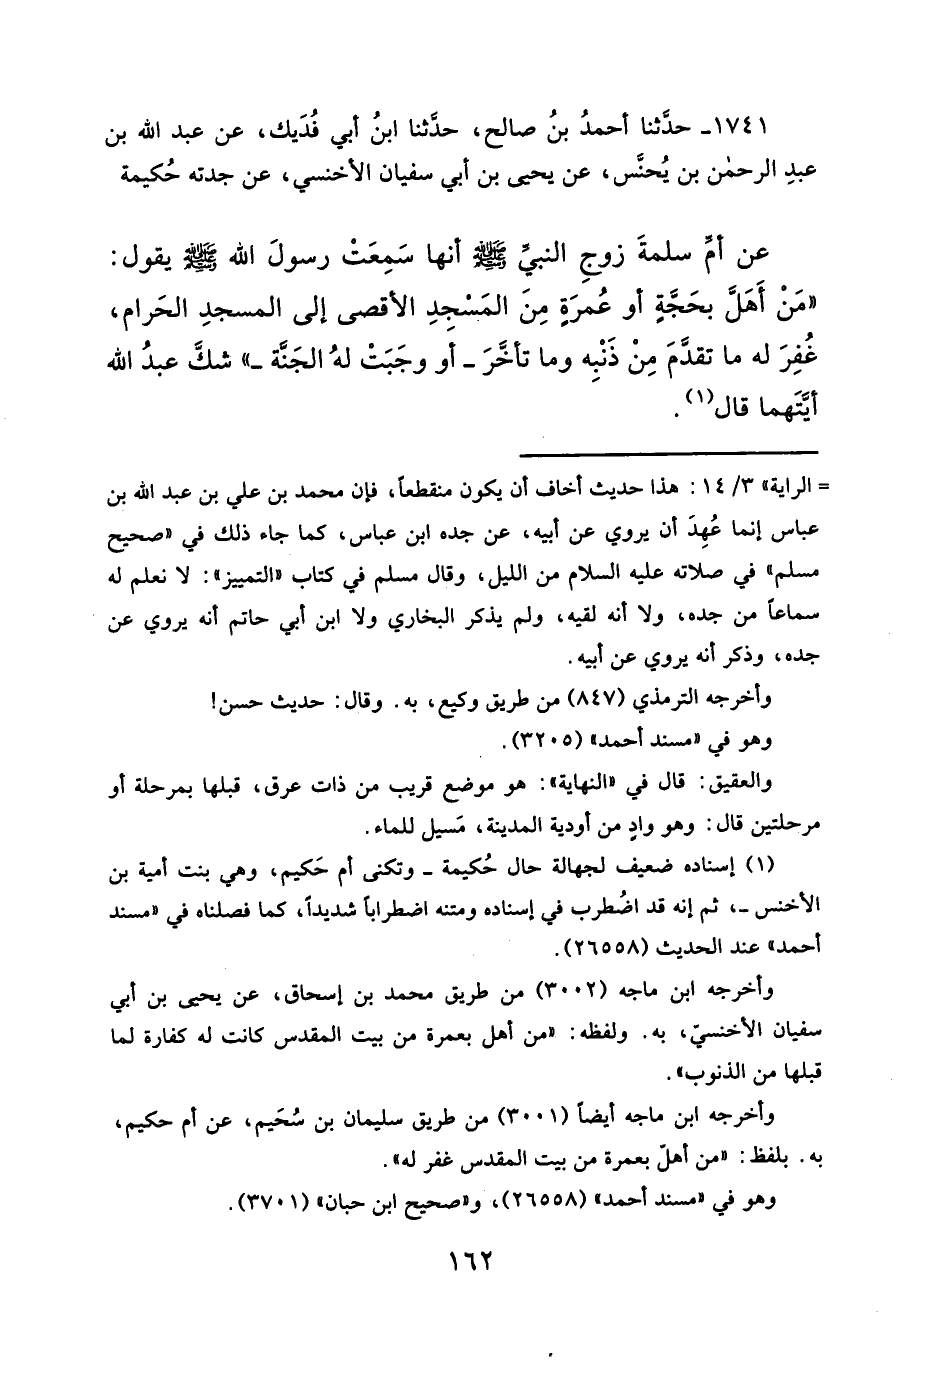 ١٧٤١ـ حدَّثنا أحمدُ بنُ صالح، حدَّثنا ابنُ أبي فُدَيك، عن عبد الله بن
عبدِ الرحمٰن بن يُحنَّس، عن يحيى بن أبي سفيان الأخنسي، عن جدته حُكيمة
عن أمِّ سلمةَ زوجِ النبيِّ ﷺ أنها سَمِعَتْ رسولَ الله ﷺ يقول:
«مَنْ أَهَلَّ بحَجَّةٍ أو عُمرَةٍ مِنَ المَسْجِدِ الأقصى إلى المسجدِ الحَرام،
غُفِرَ له ما تقدَّمَ مِنْ ذَنْبِه وما تأخَّرَ ـ أو وجَبَتْ لهُ الجَنَّة ـ» شكَّ عبدُ الله
أيَّتَهما قال(١).
= الراية» ٣/ ١٤: هذا حديث أخاف أن يكون منقطعاً، فإن محمد بن علي بن عبد الله بن
عباس إنما عُهِدَ أن يروي عن أبيه، عن جده ابن عباس، كما جاء ذلك في «صحيح
مسلم» في صلاته عليه السلام من الليل، وقال مسلم في كتاب «التمييز»: لا نعلم له
سماعاً من جده، ولا أنه لقيه، ولم يذكر البخاري ولا ابن أبي حاتم أنه يروي عن
جده، وذكر أنه يروي عن أبيه.
وأخرجه الترمذي (٨٤٧) من طريق وكيع، به. وقال: حديث حسن!
وهو في «مسند أحمد» (٣٢٠٥).
والعقيق: قال في «النهاية»: هو موضع قريب من ذات عرق، قبلها بمرحلة أو
مرحلتين قال: وهو وادٍ من أودية المدينة، مَسيل للماء.
(١) إسناده ضعيف لجهالة حال حُكيمة ـ وتكنى أم حَكيم، وهي بنت أمية بن
الأخنس ـ، ثم إنه قد اضُطرب في إسناده ومتنه اضطراباً شديداً، كما فصلناه في «مسند
أحمد» عند الحديث (٢٦٥٥٨).
وأخرجه ابن ماجه (٣٠٠٢) من طريق محمد بن إسحاق، عن يحيى بن أبي
سفيان الأخنسيّ، به. ولفظه: «من أهل بعمرة من بيت المقدس كانت له كفارة لما
قبلها من الذنوب».
وأخرجه ابن ماجه أيضاً (٣٠٠١) من طريق سليمان بن سُحَيم، عن أم حكيم،
به. بلفظ: «من أهلّ بعمرة من بيت المقدس غفر له».
وهو في «مسند أحمد» (٢٦٥٥٨)، و«صحيح ابن حبان» (٣٧٠١).
١٦٢